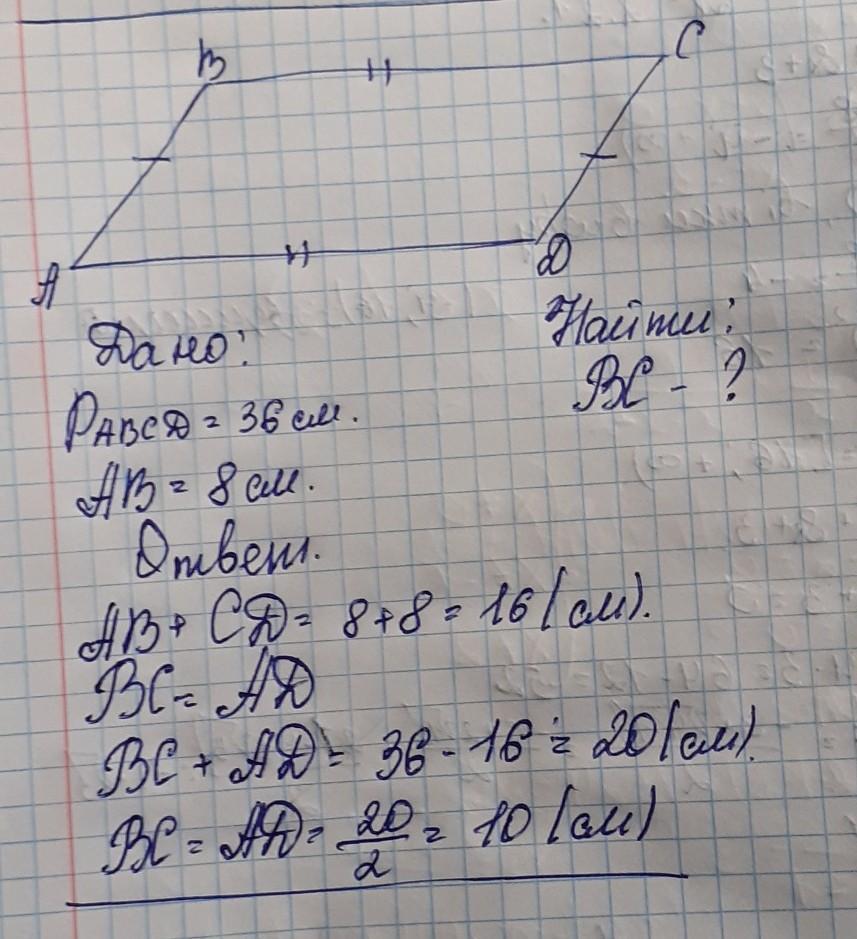 B
C
A
D
Дано:
Найти:
BC - ?
PABCD = 36 см.
AB = 8 см.
Ответ.
AB + CD = 8 + 8 = 16 (см).
BC = AD
BC + AD = 36 - 16 = 20 (см).
BC = AD = 20/2 = 10 (см)